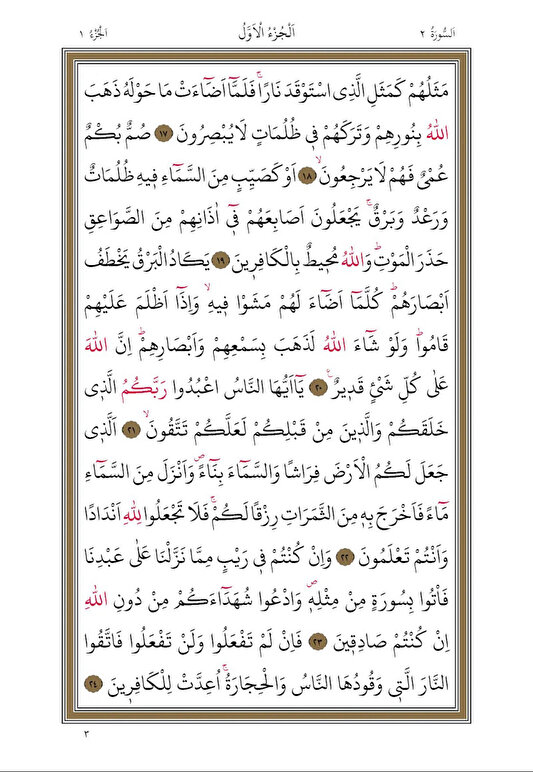 اَلسُّورَةُ ٢ اَلْجُزْءُ الْاَوَّلُ اَلْجُزْءُ ١
مَثَلُهُمْ كَمَثَلِ الَّذِى اسْتَوْقَدَ نَارًاۚ فَلَمَّٓا اَضَٓاءَتْ مَا حَوْلَهُ ذَهَبَ
اللّٰهُ بِنُورِهِمْ وَتَرَكَهُمْ فٖى ظُلُمَاتٍ لَا يُبْصِرُونَ ﴿١٧﴾ صُمٌّ بُكْمٌ
عُمْىٌ فَهُمْ لَا يَرْجِعُونَۙ ﴿١٨﴾ اَوْ كَصَيِّبٍ مِنَ السَّمَٓاءِ فٖيهِ ظُلُمَاتٌ
وَرَعْدٌ وَبَرْقٌۚ يَجْعَلُونَ اَصَابِعَهُمْ فٖٓى اٰذَانِهِمْ مِنَ الصَّوَاعِقِ
حَذَرَ الْمَوْتِؕ وَاللّٰهُ مُحٖيطٌ بِالْكَافِرٖينَ ﴿١٩﴾ يَكَادُ الْبَرْقُ يَخْطَفُ
اَبْصَارَهُمْؕ كُلَّمَٓا اَضَٓاءَ لَهُمْ مَشَوْا فٖيهِۙ وَاِذَٓا اَظْلَمَ عَلَيْهِمْ
قَامُواؕ وَلَوْ شَٓاءَ اللّٰهُ لَذَهَبَ بِسَمْعِهِمْ وَاَبْصَارِهِمْؕ اِنَّ اللّٰهَ
عَلٰى كُلِّ شَیْئٍ قَدٖيرٌࣖ ﴿٢٠﴾ يَٓا اَيُّهَا النَّاسُ اعْبُدُوا رَبَّكُمُ الَّذٖى
خَلَقَكُمْ وَالَّذٖينَ مِنْ قَبْلِكُمْ لَعَلَّكُمْ تَتَّقُونَۙ ﴿٢١﴾ اَلَّذٖى
جَعَلَ لَكُمُ الْاَرْضَ فِرَاشًا وَالسَّمَٓاءَ بِنَٓاءًࣕ وَاَنْزَلَ مِنَ السَّمَٓاءِ
مَٓاءً فَاَخْرَجَ بِهٖ مِنَ الثَّمَرَاتِ رِزْقًا لَكُمْۚ فَلَا تَجْعَلُوا لِلّٰهِ اَنْدَادًا
وَاَنْتُمْ تَعْلَمُونَ ﴿٢٢﴾ وَاِنْ كُنْتُمْ فٖى رَيْبٍ مِمَّا نَزَّلْنَا عَلٰى عَبْدِنَا
فَاْتُوا بِسُورَةٍ مِنْ مِثْلِهٖࣕ وَادْعُوا شُهَدَٓاءَكُمْ مِنْ دُونِ اللّٰهِ
اِنْ كُنْتُمْ صَادِقٖينَ ﴿٢٣﴾ فَاِنْ لَمْ تَفْعَلُوا وَلَنْ تَفْعَلُوا فَاتَّقُوا
النَّارَ الَّتٖى وَقُودُهَا النَّاسُ وَالْحِجَارَةُۚ اُعِدَّتْ لِلْكَافِرٖينَ ﴿٢٤﴾
٣